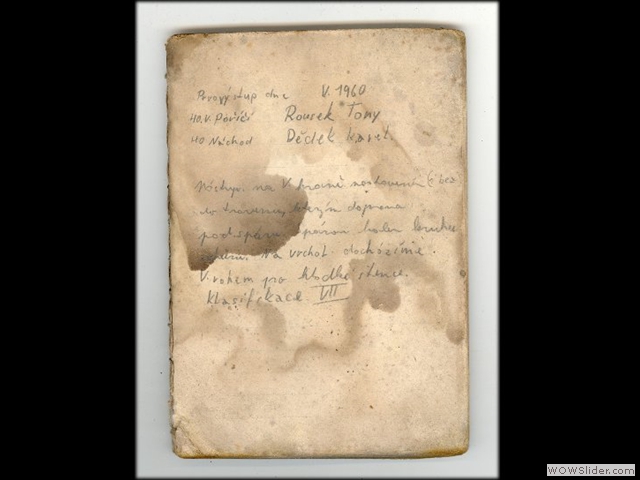 Prvovýstup dne V. 1960
HO.V. Poříčí Rousek Tony
HO Náchod Dědek Karel
Nástup na V. hraně
do traverzu doprava
pod spárou spárou kolem
Na vrchol docházíme
V. rohem pro hladké stěnce.
Klasifikace VII
WOWSlider.com